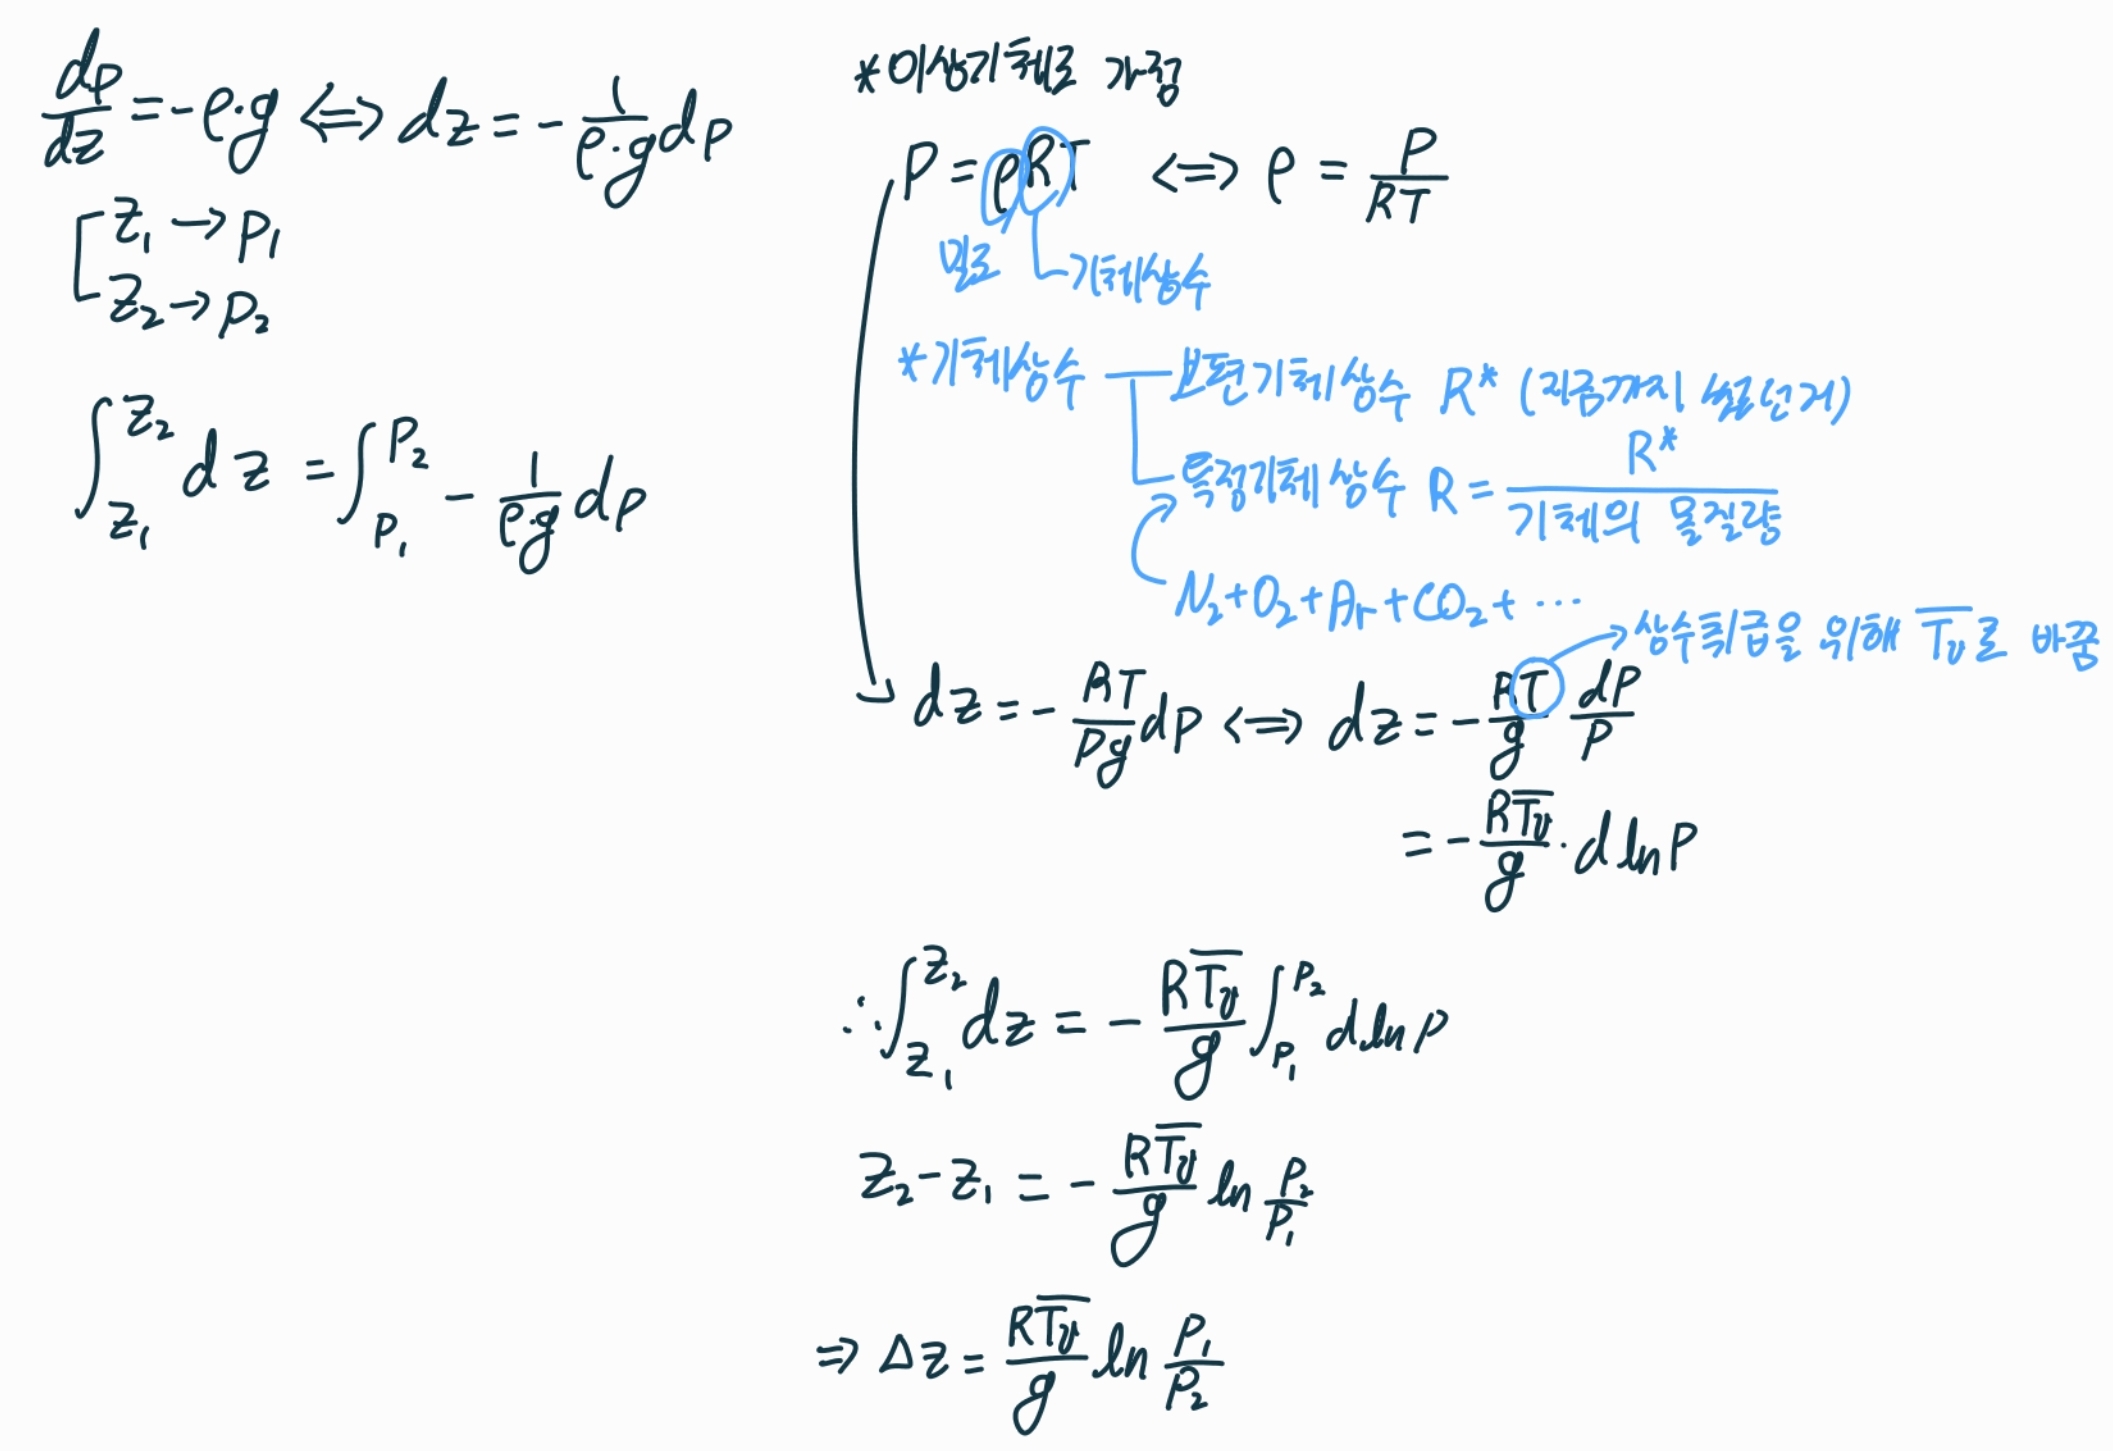 dp/dz = -ρ·g ⟺ dz = - 1/(ρ·g) dp
z₁ → p₁
z₂ → p₂
∫_{z₁}^{z₂} dz = ∫_{p₁}^{p₂} - 1/(ρ·g) dp
*이상기체로 가정
P = ρRT ⟺ ρ = P/RT
밀도
기체상수
*기체상수
보편기체상수 R* (지금까지 썼던거)
특정기체상수 R = R*/기체의 몰질량
N₂+O₂+Ar+CO₂+ ⋯
→상수취급을 위해 T̅ᵥ로 바꿈
dz = - RT/Pg dp ⟺ dz = - RT/g dP/P
= - RT̅ᵥ/g · d ln P
∴ ∫_{z₁}^{z₂} dz = - RT̅ᵥ/g ∫_{P₁}^{P₂} d ln P
z₂ - z₁ = - RT̅ᵥ/g ln P₂/P₁
⇒ Δz = RT̅ᵥ/g ln P₁/P₂